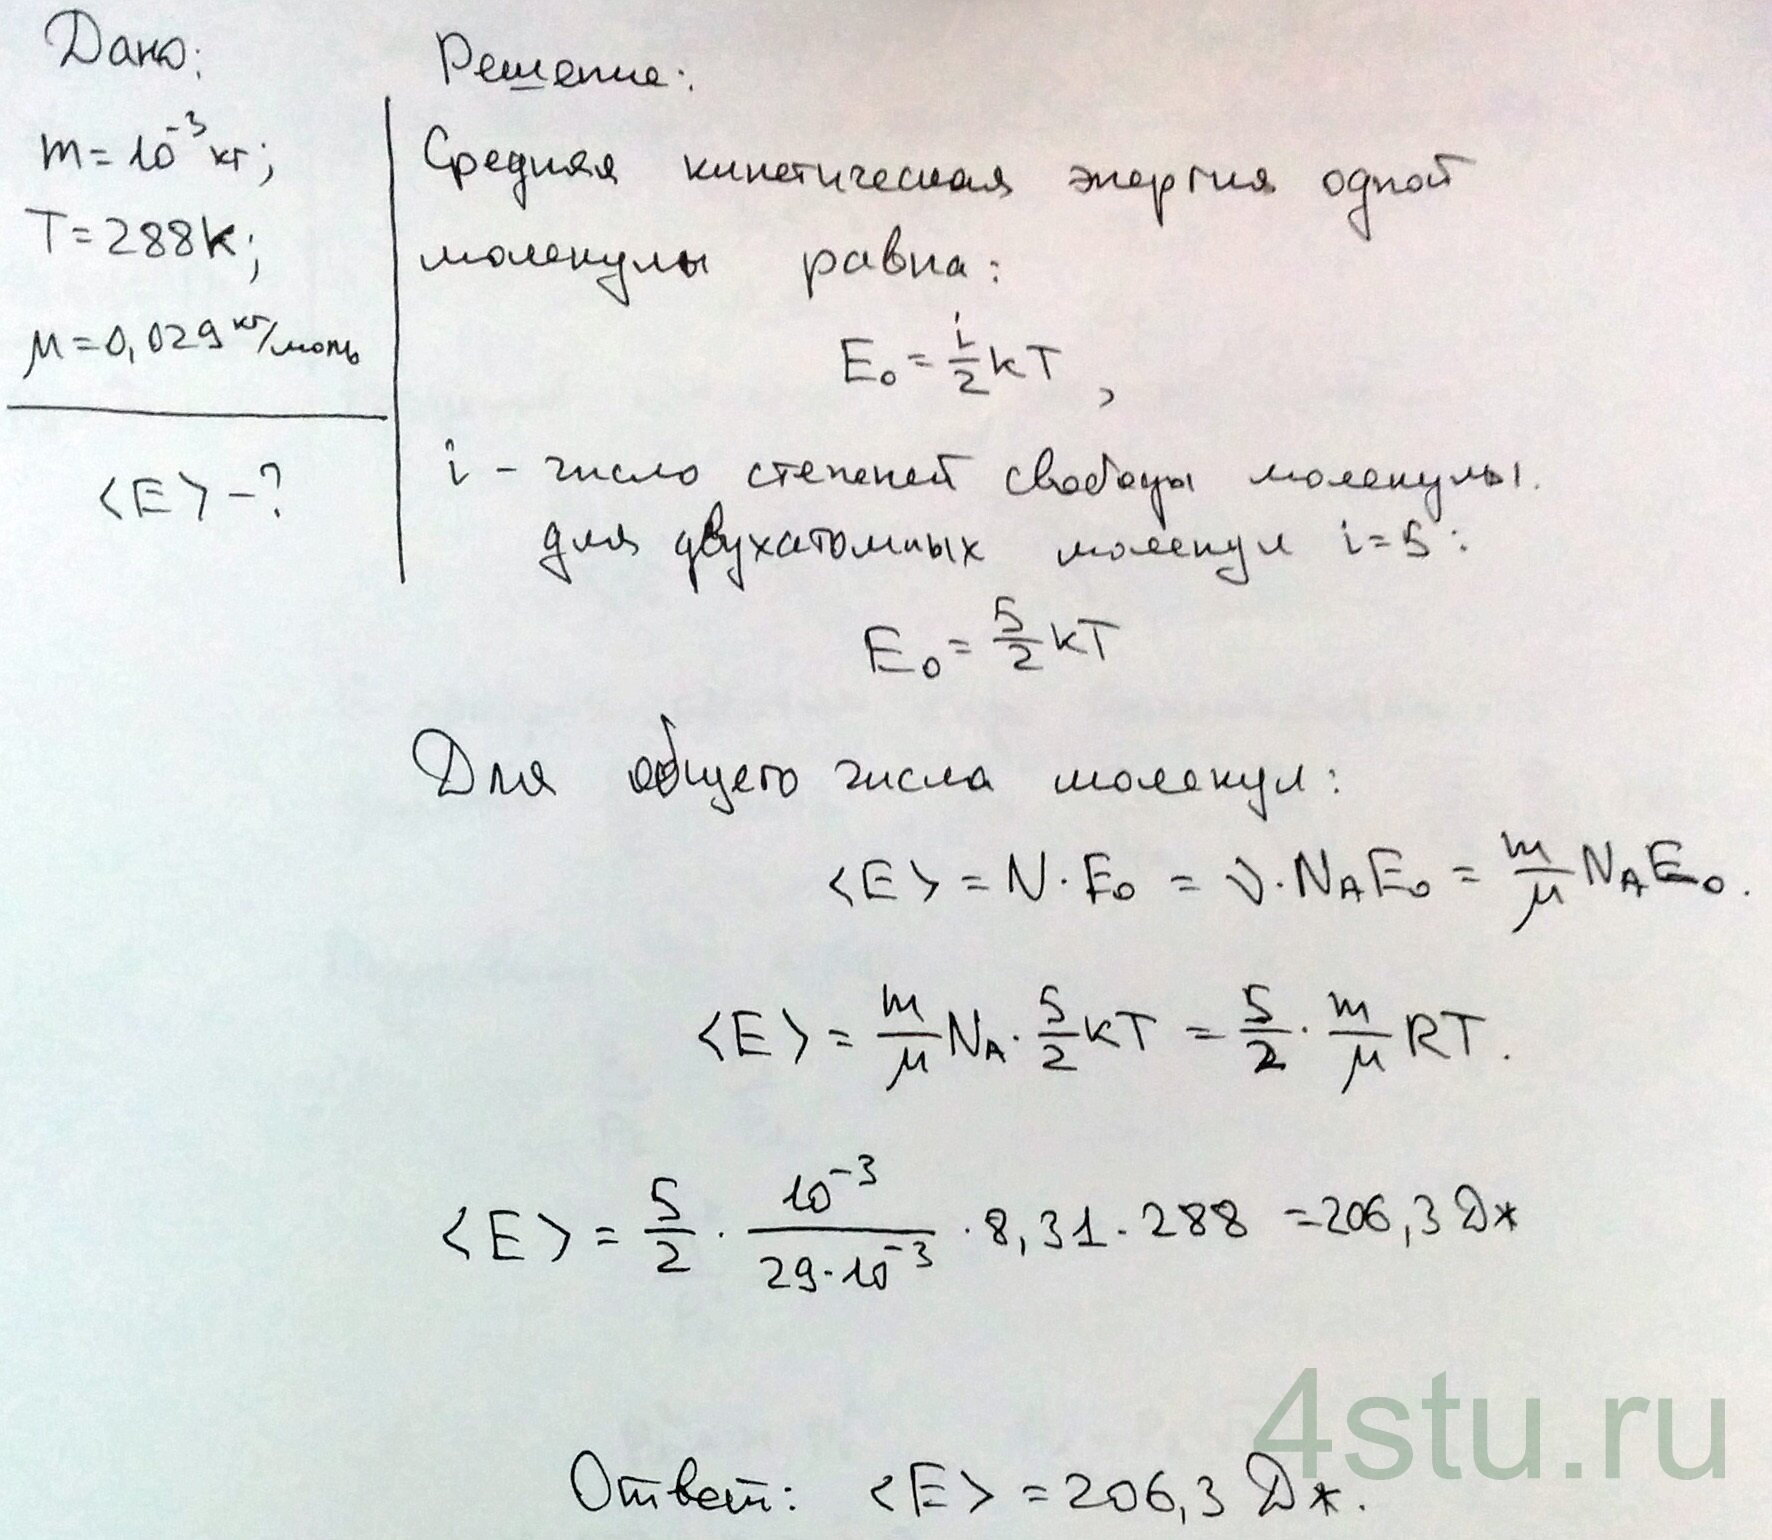 Дано:
m = 10⁻³ кг;
T = 288 К;
μ = 0,029 кг/моль
<E> – ?
Решение:
Средняя кинетическая энергия одной
молекулы равна:
E₀ = i/2 kT ,
i – число степеней свободы молекулы.
для двухатомных молекул i = 5 :
E₀ = 5/2 kT
Для общего числа молекул:
<E> = N · E₀ = ν · N_A E₀ = m/μ N_A E₀ .
<E> = m/μ N_A · 5/2 kT = 5/2 · m/μ RT .
<E> = 5/2 · 10⁻³/29·10⁻³ · 8,31 · 288 = 206,3 Дж
4stu.ru
Ответ: <E> = 206,3 Дж.